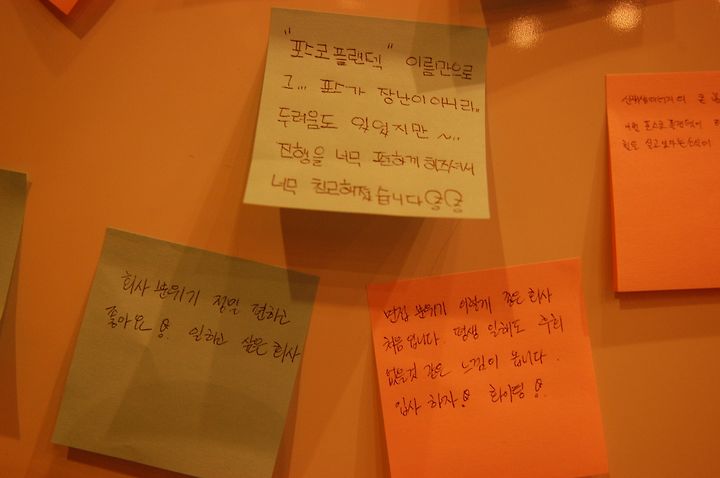 "포스코플랜텍" 이름만으로
그... 포스가 장난이 아니라..
두려움도 있었지만 ~..
진행을 너무 편하게 해주셔서
너무 친근해졌습니다
회사 분위기 정말 편하고
좋아요 일하고 싶은 회사
면접 분위기 이렇게 좋은 회사
처음 입니다. 평생 일해도 후회
없을것 같은 느낌이 옵니다.
입사 하자! 화이팅!